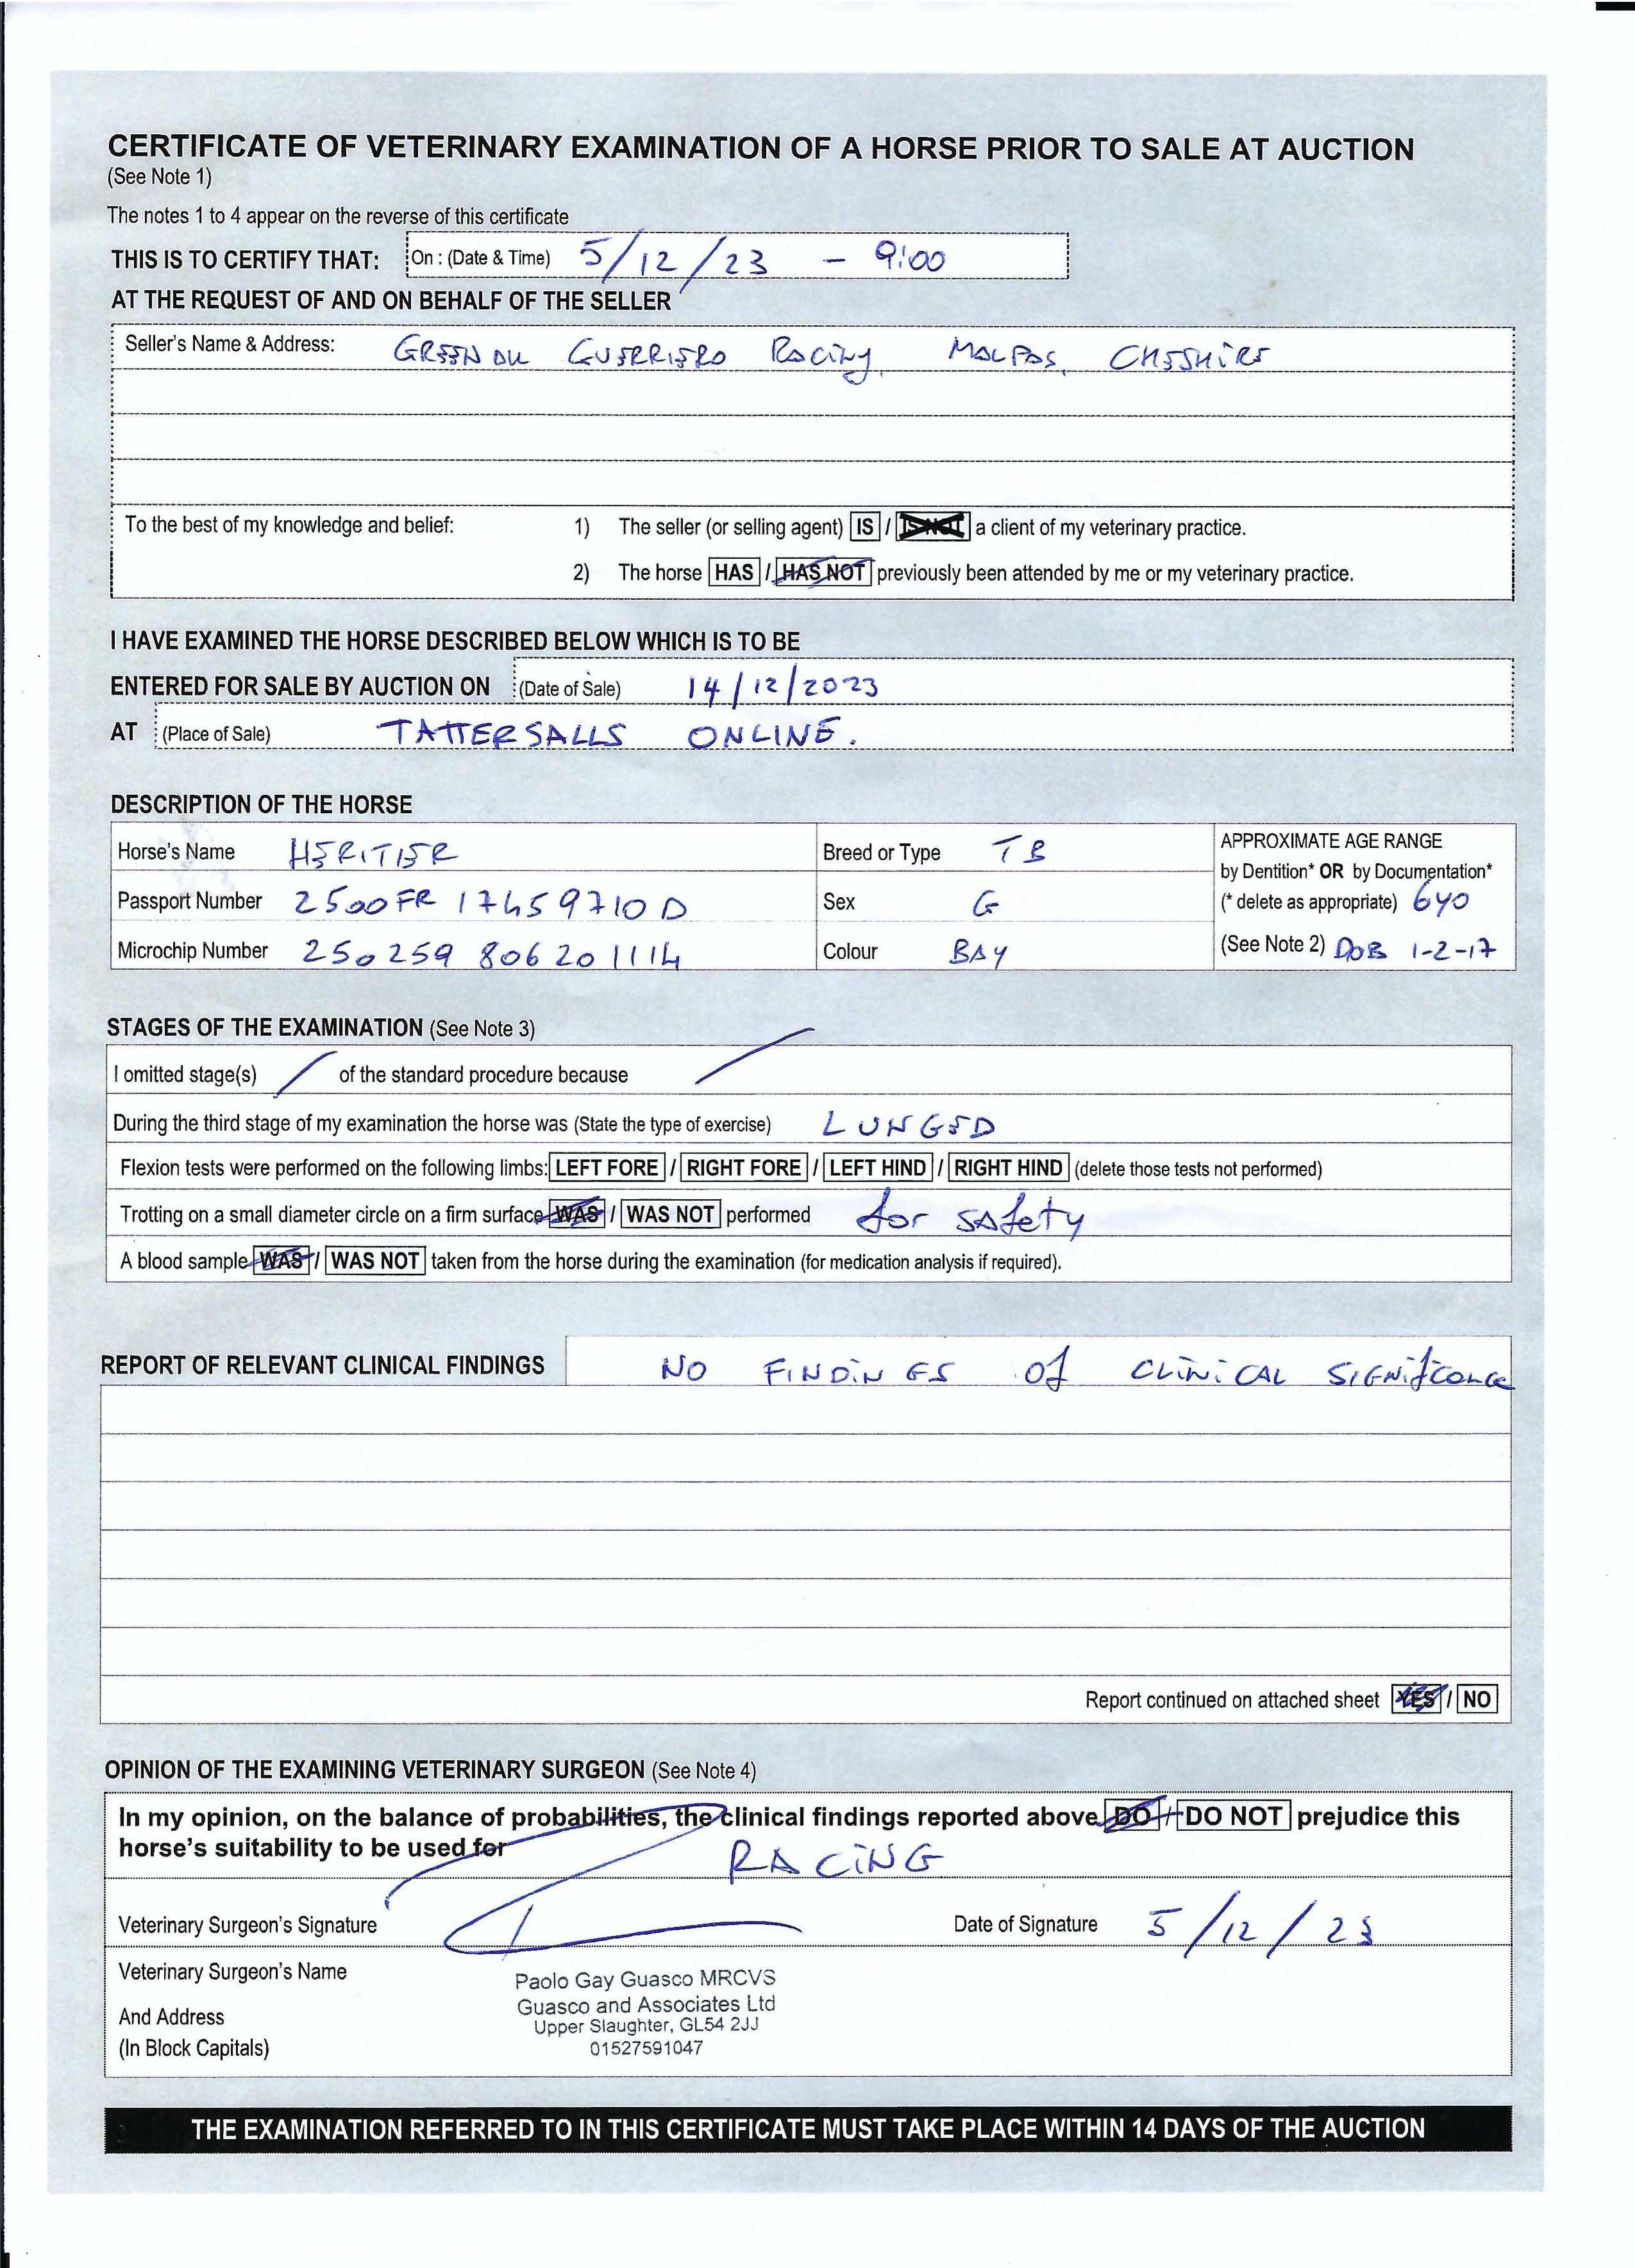 CERTIFICATE OF VETERINARY EXAMINATION OF A HORSE PRIOR TO SALE AT AUCTION
(See Note 1)
The notes 1 to 4 appear on the reverse of this certificate
THIS IS TO CERTIFY THAT: On : (Date & Time) 5/12/23 - 9:00
AT THE REQUEST OF AND ON BEHALF OF THE SELLER
Seller's Name & Address: GREENALL GUERRIERO Racing, MALPAS, CHESHIRE
To the best of my knowledge and belief: 1) The seller (or selling agent) IS / IS NOT a client of my veterinary practice.
2) The horse HAS / HAS NOT previously been attended by me or my veterinary practice.
I HAVE EXAMINED THE HORSE DESCRIBED BELOW WHICH IS TO BE
ENTERED FOR SALE BY AUCTION ON (Date of Sale) 14/12/2023
AT (Place of Sale) TATTERSALLS ONLINE.
DESCRIPTION OF THE HORSE
Horse's Name HERITIER Breed or Type TB APPROXIMATE AGE RANGE
by Dentition* OR by Documentation*
Passport Number 2500FR 17459710D Sex G (* delete as appropriate) 6YO
Microchip Number 250259 806201114 Colour BAY (See Note 2) DOB 1-2-17
STAGES OF THE EXAMINATION (See Note 3)
I omitted stage(s) / of the standard procedure because /
During the third stage of my examination the horse was (State the type of exercise) LUNGED
Flexion tests were performed on the following limbs: LEFT FORE / RIGHT FORE / LEFT HIND / RIGHT HIND (delete those tests not performed)
Trotting on a small diameter circle on a firm surface WAS / WAS NOT performed for safety
A blood sample WAS / WAS NOT taken from the horse during the examination (for medication analysis if required).
REPORT OF RELEVANT CLINICAL FINDINGS NO FINDINGS Of CLINICAL SIGNificance
Report continued on attached sheet YES / NO
OPINION OF THE EXAMINING VETERINARY SURGEON (See Note 4)
In my opinion, on the balance of probabilities, the clinical findings reported above DO / DO NOT prejudice this
horse's suitability to be used for RACING
Veterinary Surgeon's Signature Date of Signature 5/12/23
Veterinary Surgeon's Name
And Address
(In Block Capitals)
Paolo Gay Guasco MRCVS
Guasco and Associates Ltd
Upper Slaughter, GL54 2JJ
01527591047
THE EXAMINATION REFERRED TO IN THIS CERTIFICATE MUST TAKE PLACE WITHIN 14 DAYS OF THE AUCTION